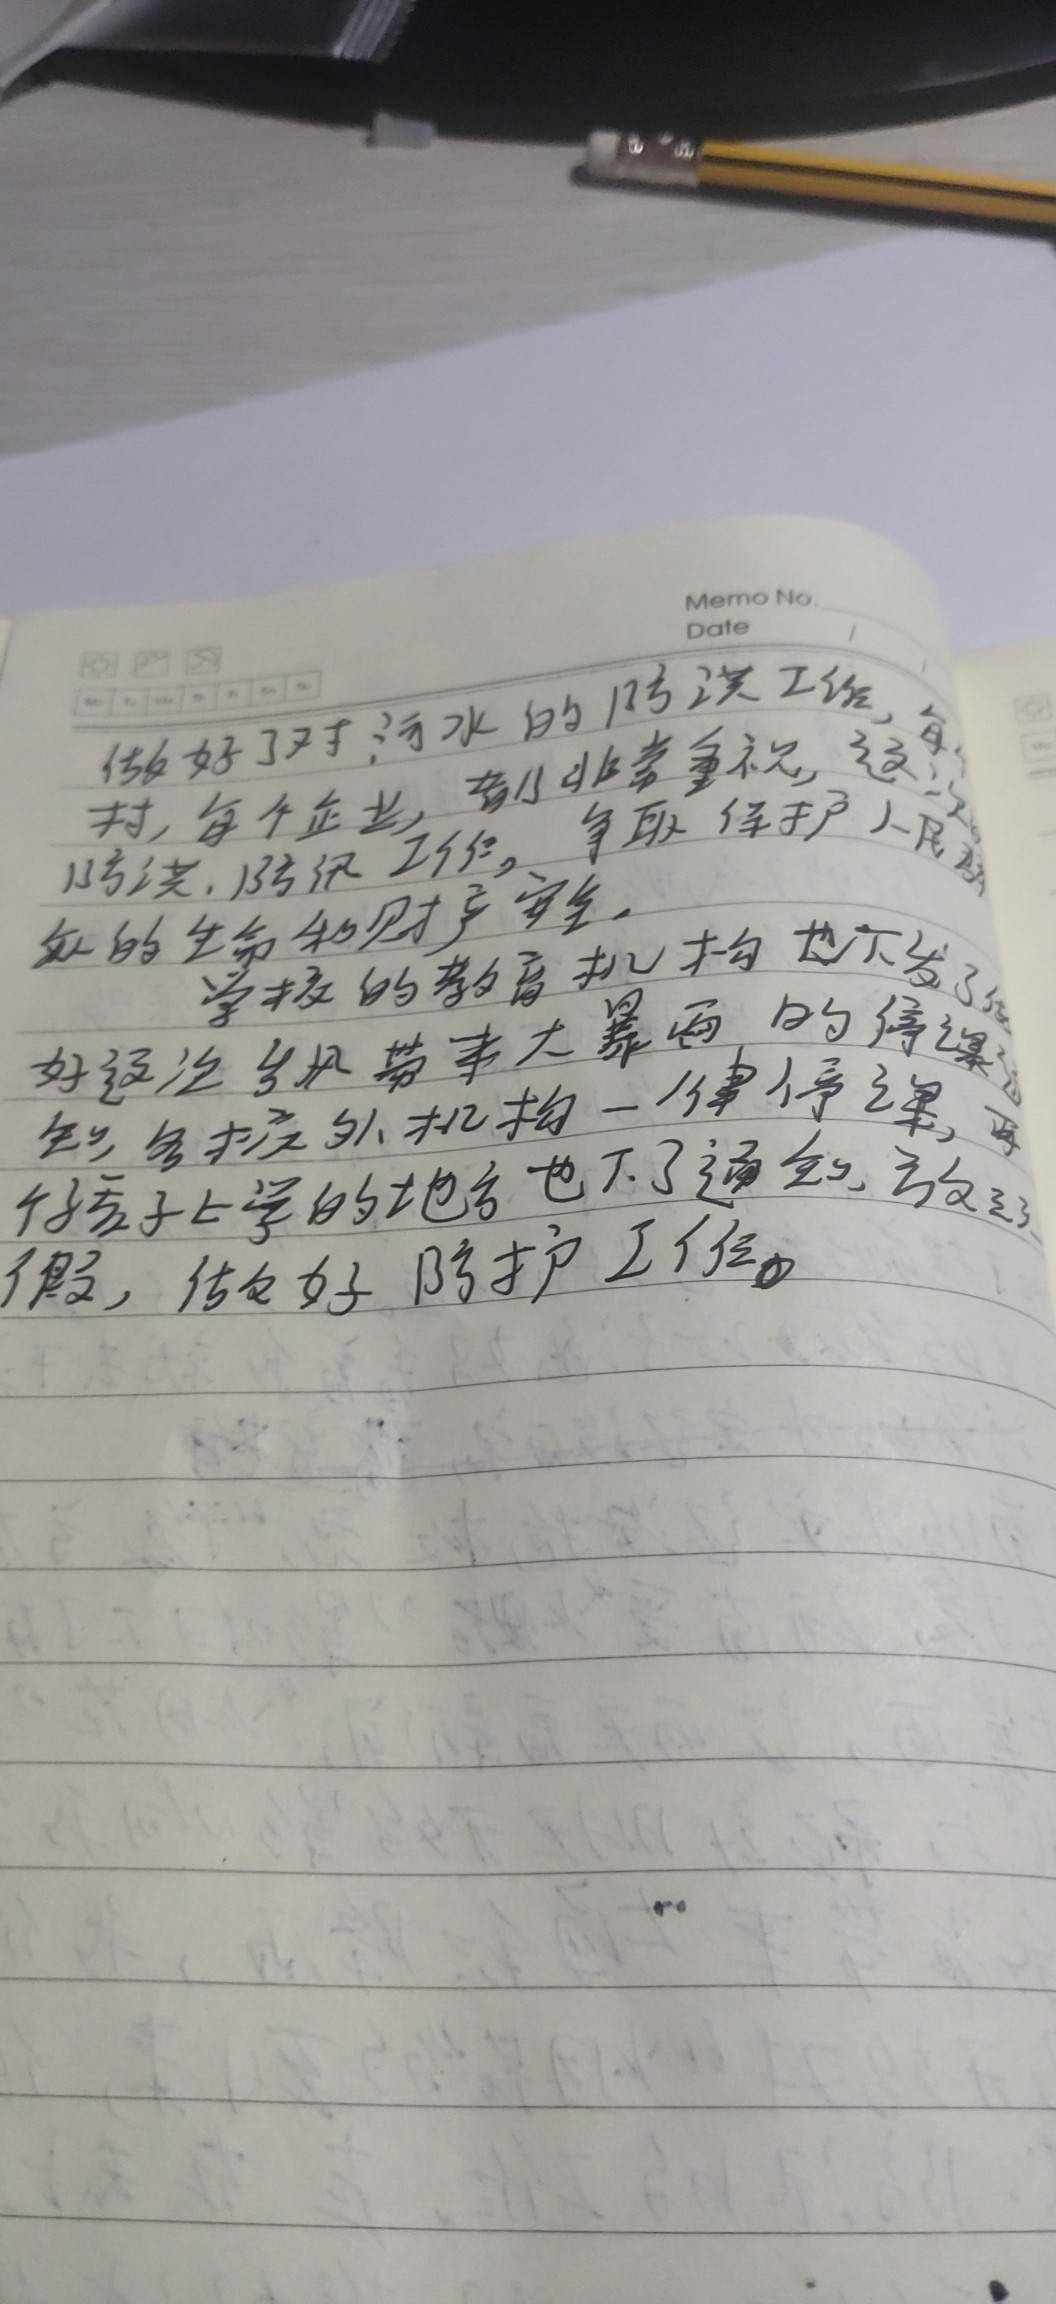 Memo No.
Date
做好了对污水的防洪工作,每
村,每个企业,都非常重视,这次
防洪.防汛工作。争取保护人民群
众的生命和财产安全.
学校的教育机构也下发了做
好这次台风带来大暴雨的停课通
知,各校外机构一律停课,每
个孩子上学的地方也下了通知,放
假,做好防护工作。